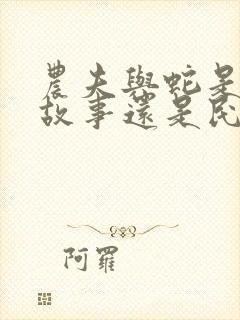 農夫與蛇是
故事還是民
阿羅